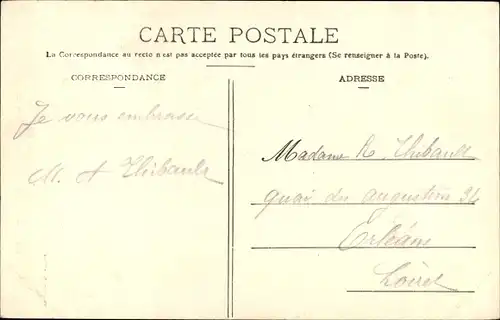 CARTE POSTALE
La Correspondance au recto n'est pas acceptée par tous les pays étrangers (Se renseigner à la Poste).
CORRESPONDANCE
Je vous embrasse
M. A Thibault
ADRESSE
Madame R. Thibault
quai des augustins 32
Orléans
Loiret